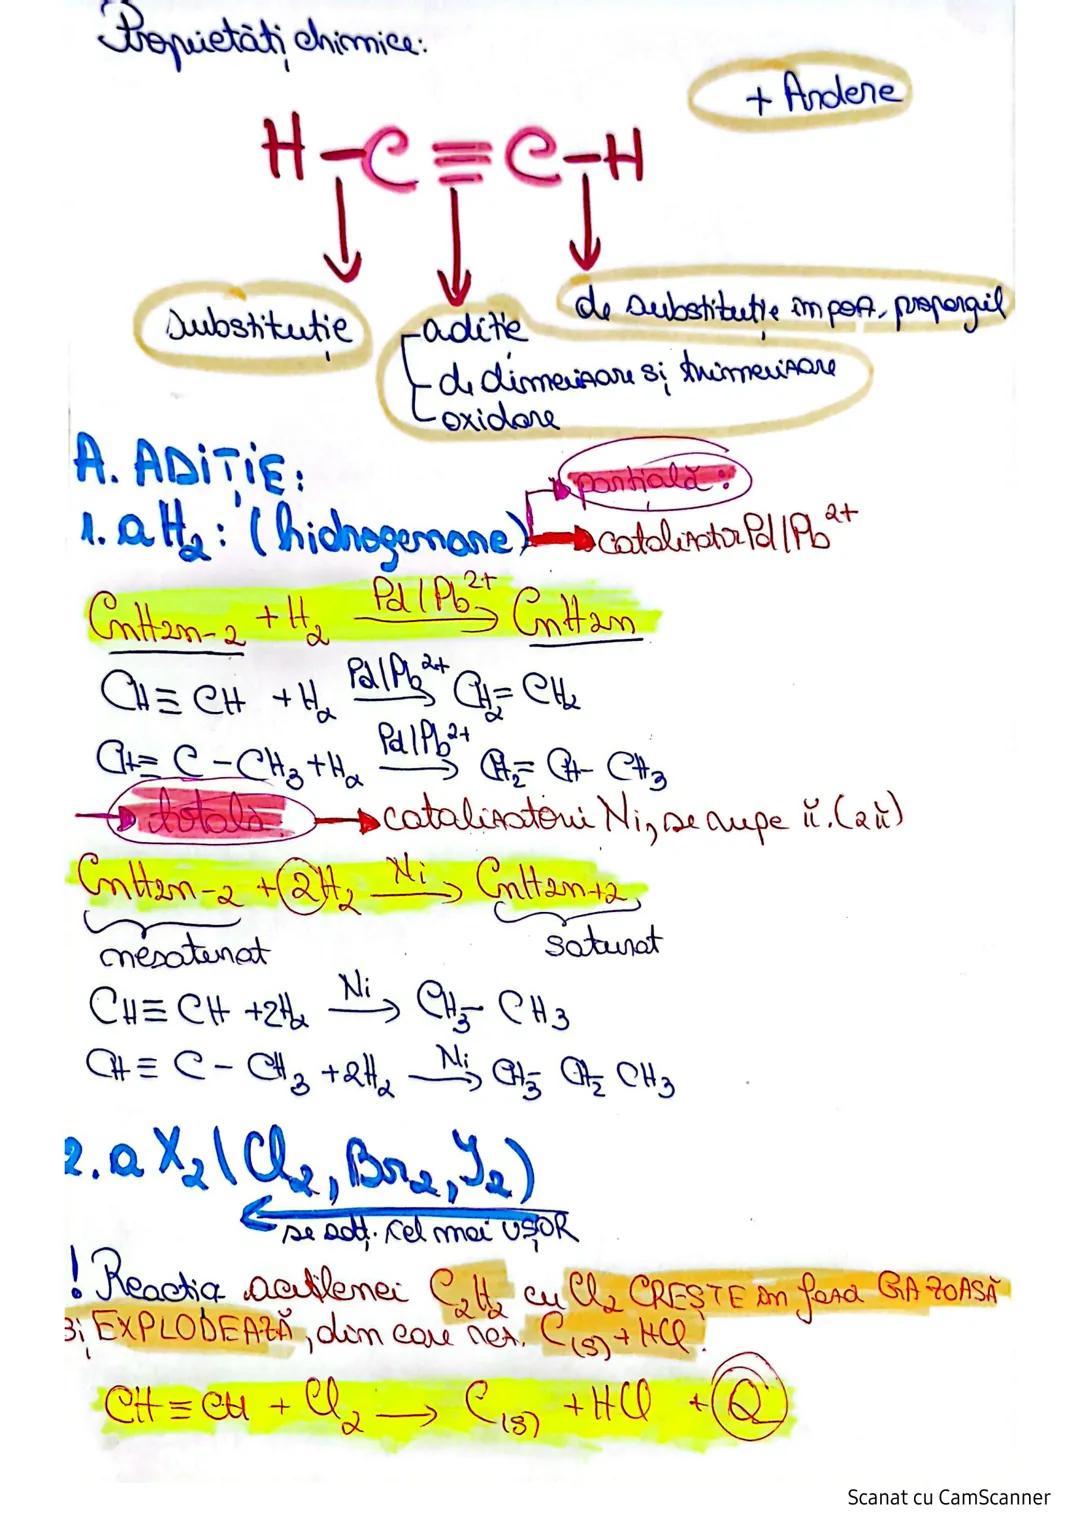 Proprietăți chimice:
+ Ardere
H-C≡C-H
substituție
de substituție în poz. propargil
- adiție
- de dimerizare și trimerizare
- oxidare
A. ADIȚIE:
parțială:
1. a H2: (hidrogenare) → catalizator Pd/Pb2+
CnH2n-2 + H2 Pd/Pb2+ → CnH2n
CH≡CH + H2 Pd/Pb2+ → CH2=CH2
CH≡C-CH3 + H2 Pd/Pb2+ → CH2=CH-CH3
→ totală → catalizatori Ni, se rupe π. (2π)
CnH2n-2 + 2H2 Ni → CnH2n+2
nesaturat saturat
CH≡CH + 2H2 Ni → CH3-CH3
CH≡C-CH3 + 2H2 Ni → CH3-CH2 CH3
2. a X2 (Cl2, Br2, I2)
se adț. cel mai UȘOR
! Reactia acetilenei C2H2 cu Cl2 CREȘTE în faza GAZOASĂ
și EXPLODEAZĂ, din care rez. C(s) + HCl.
CH≡CH + Cl2 → C(s) + HCl + Q
Scanat cu CamScanner